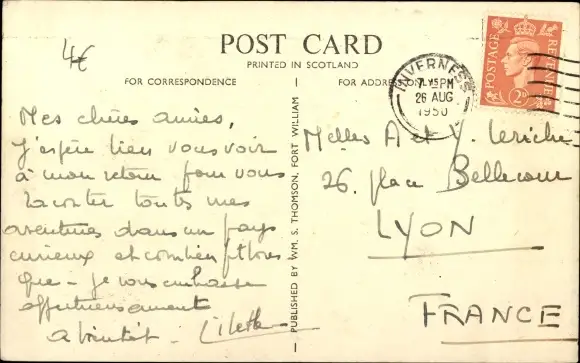 4€
POST CARD
PRINTED IN SCOTLAND
FOR CORRESPONDENCE
FOR ADDRESS ONLY
INVERNESS
7 15 PM
26 AUG
1950
POSTAGE
REVENUE
2D
Mes chères amies,
J'espère bien vous voir
à mon retour pour vous
raconter toutes mes
aventures dans un pays
curieux et combien pittores
que - je vous embrasse
affectueusement
a bientôt - Lilette
PUBLISHED BY WM. S. THOMSON, FORT WILLIAM
Melles A et Y. Leriche
26. place Bellecour
LYON
FRANCE